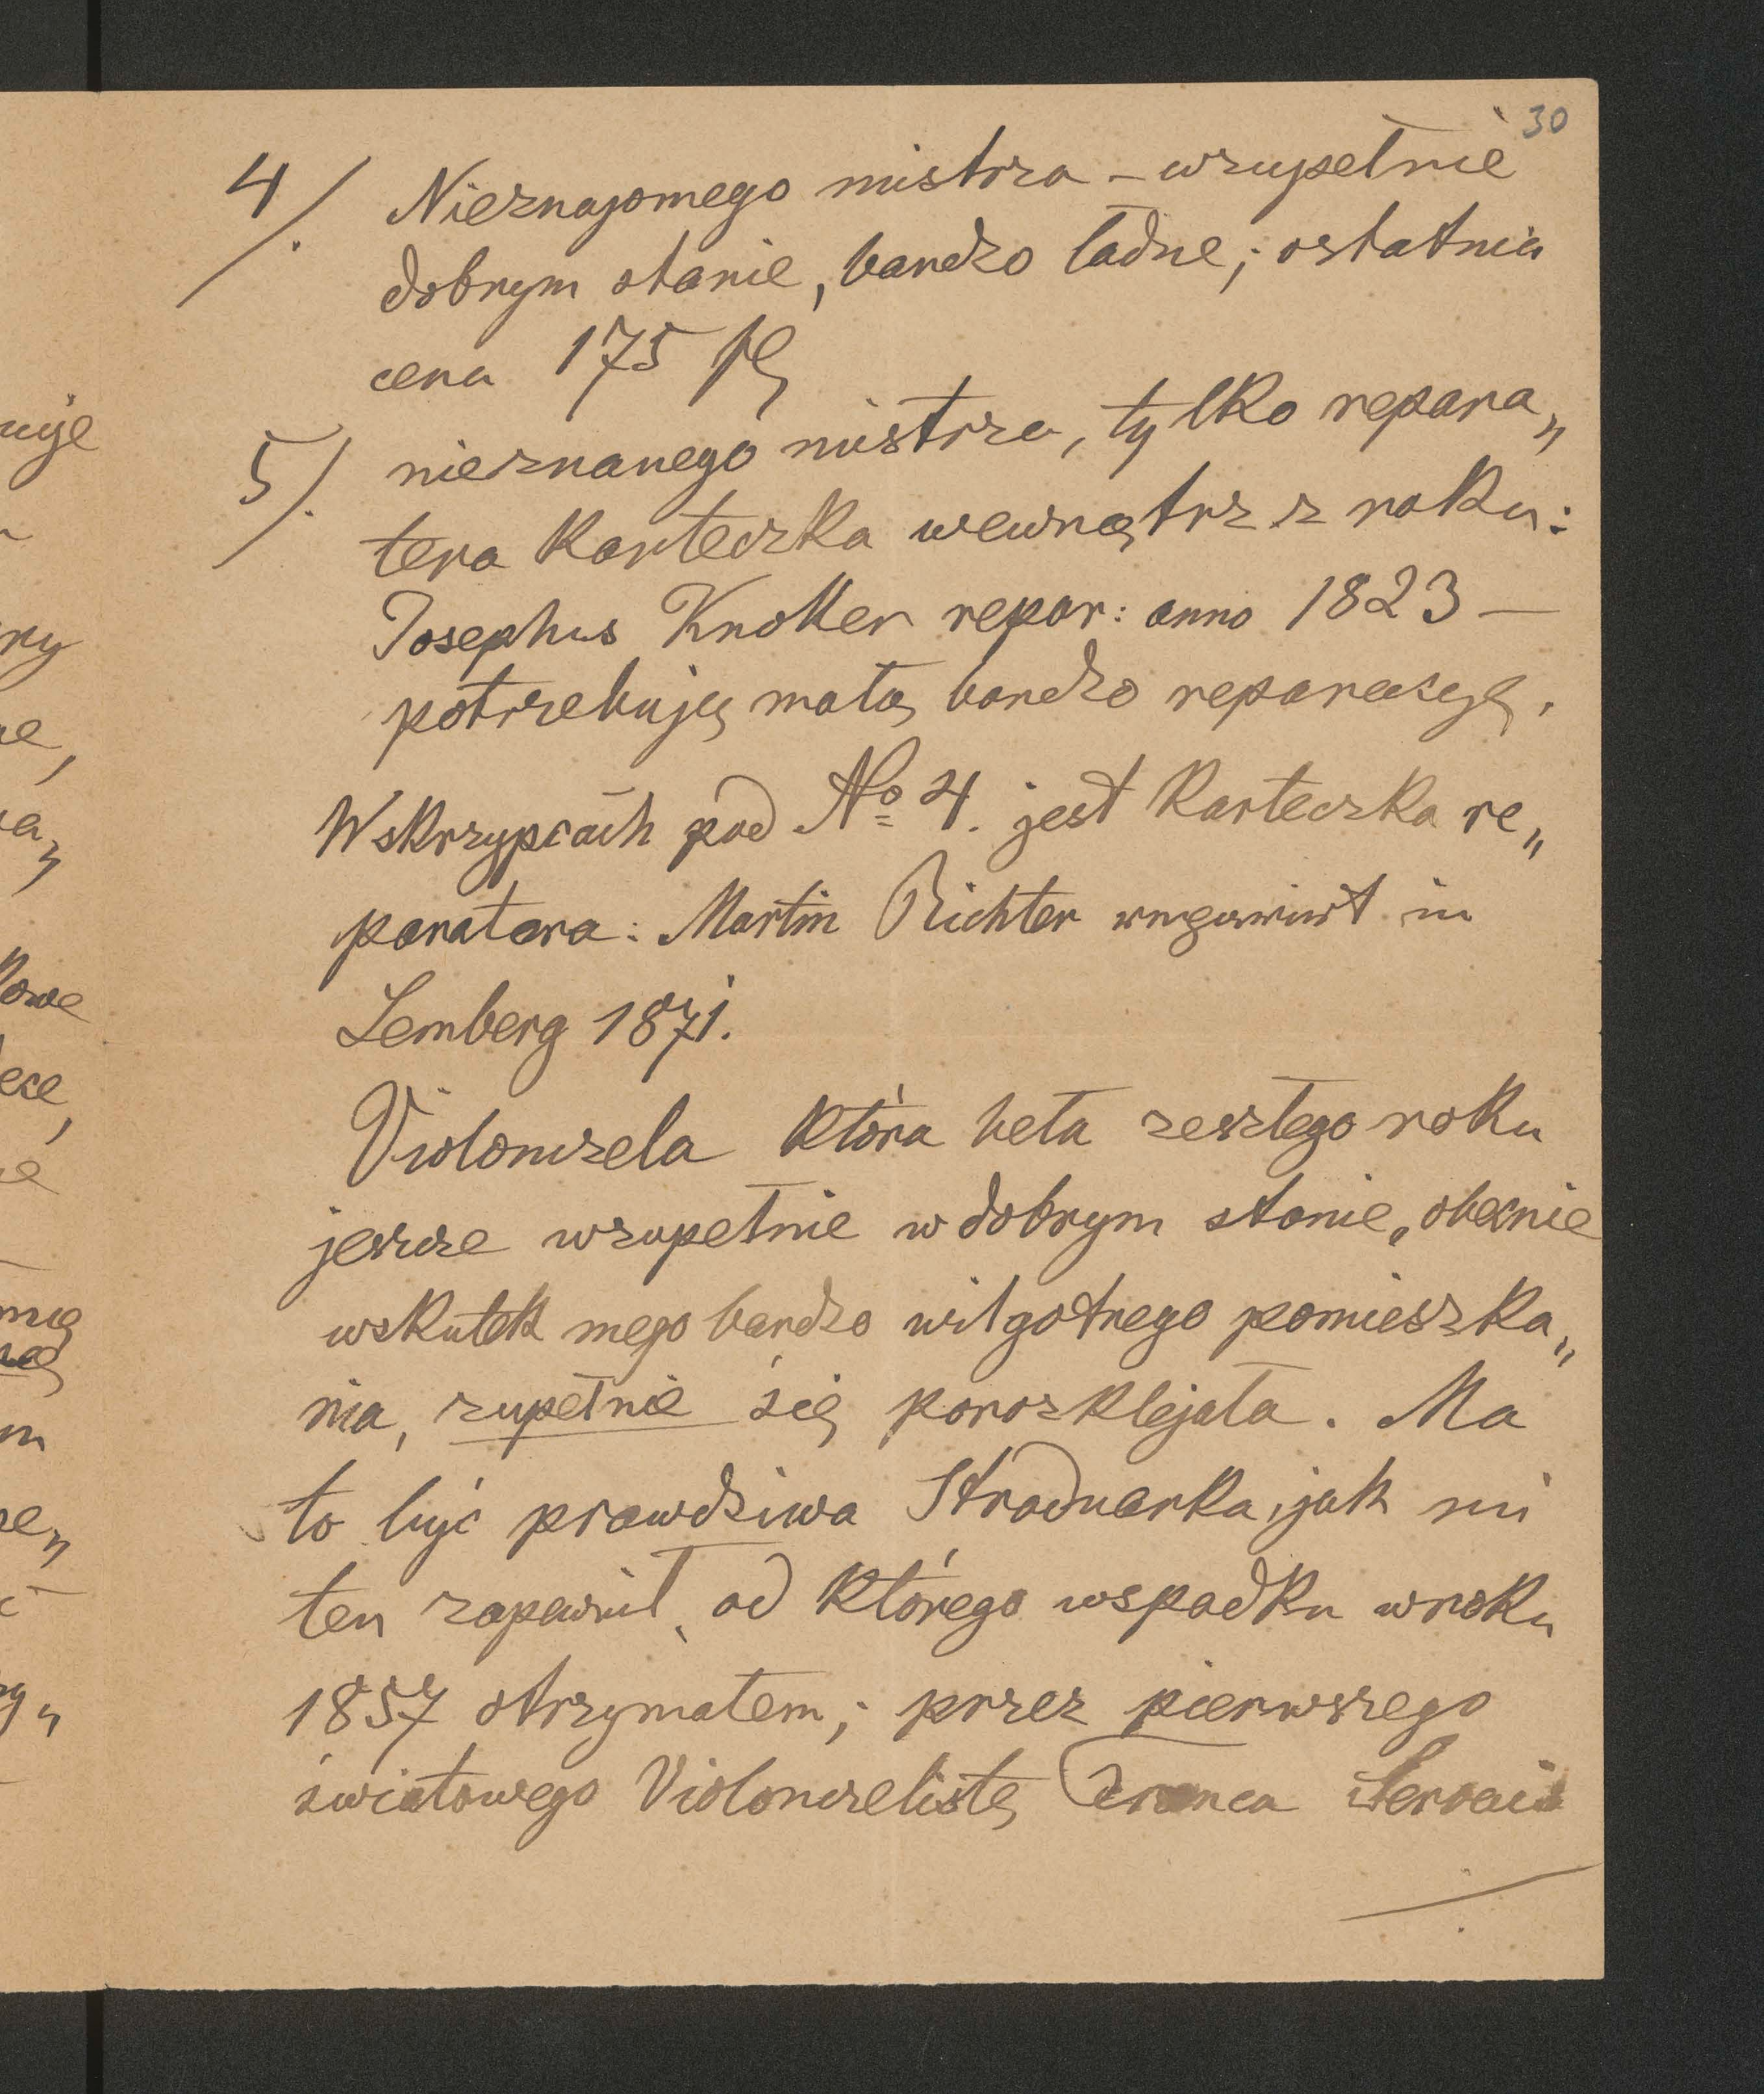 30
4/. Nieznajomego mistrza – wzupełnie
dobrym stanie, bardzo ładne; ostatnia
cena 175 fl
5/. nieznanego mistrza, tylko repara„
tera karteczka wewnątrz z roku:
Josephus Knoller repar: anno 1823 —
potrzebują małą bardzo reparacyę.
Wskrzypcach pod No 4. jest karteczka re„
paratora: Martin Richter in
Lemberg 1871.
Violonczela która beła zeszłego roku
jeszcze wzupełnie w dobrym stanie, obecnie
wskutek mego bardzo wilgotnego pomieszka„
nia, zupełnie się porozklejała. Ma
to być prawdziwa Straduarka, jak mi
ten zapewnił, od którego wspadku wroku
1857 otrzymałem; przez pierwszego
światowego Violonczelistę Franca Servais
uje
ny
kowe